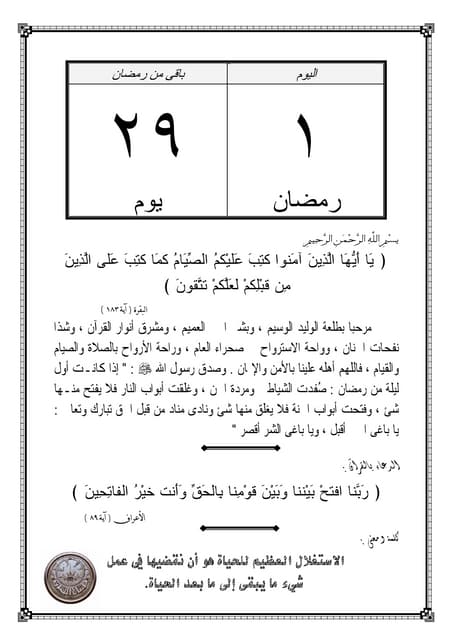 اليوم
باقى من رمضان
١
٢٩
رمضان
يوم
بسم الله الرحمن الرحيم
( يَا أَيُّهَا الَّذِينَ آمَنوا كتِبَ عَليْكمُ الصِّيَامُ كمَا كتِبَ عَلى الَّذِينَ
مِن قبْلِكمْ لعَلَّكمْ تتَّقونَ )
البقرة ( آية ١٨٣ )
مرحبا بطلعة الوليد الوسيم ، وبشـ ا العميم ، ومشرق أنوار القرآن ، وشذا
نفحات ا نان ، وواحة الاسترواح صحراء العام ، وراحة الأرواح بالصلاة والصيام
والقيام ، فاللهم أهله علينا بالأمن والإ ان . وصدق رسول الله ﷺ : " إذا كانت أول
ليلة من رمضان : صُفدت الشياط ومردة ا ن ، وغلقت أبواب النار فلا يفتح منها
شئ ، وفتحت أبواب ا نة فلا يغلق منها شئ ونادى مناد من قبل ا ق تبارك وتعا :
يا باغى ا أقبل ، ويا باغى الشر أقصر "
الدعاء بالقرآن .
( رَبَّنا افتحْ بَيْننا وَبَيْنَ قوْمِنا بِالحَقِّ وَأنت خيْرُ الفاتِحِينَ )
الأعراف ( آية ٨٩ )
كلمة ومعنى .
الاستغلال العظيم للحياة هو أن نقضيها فى عمل
شيء ما يبقى إلى ما بعد الحياة.